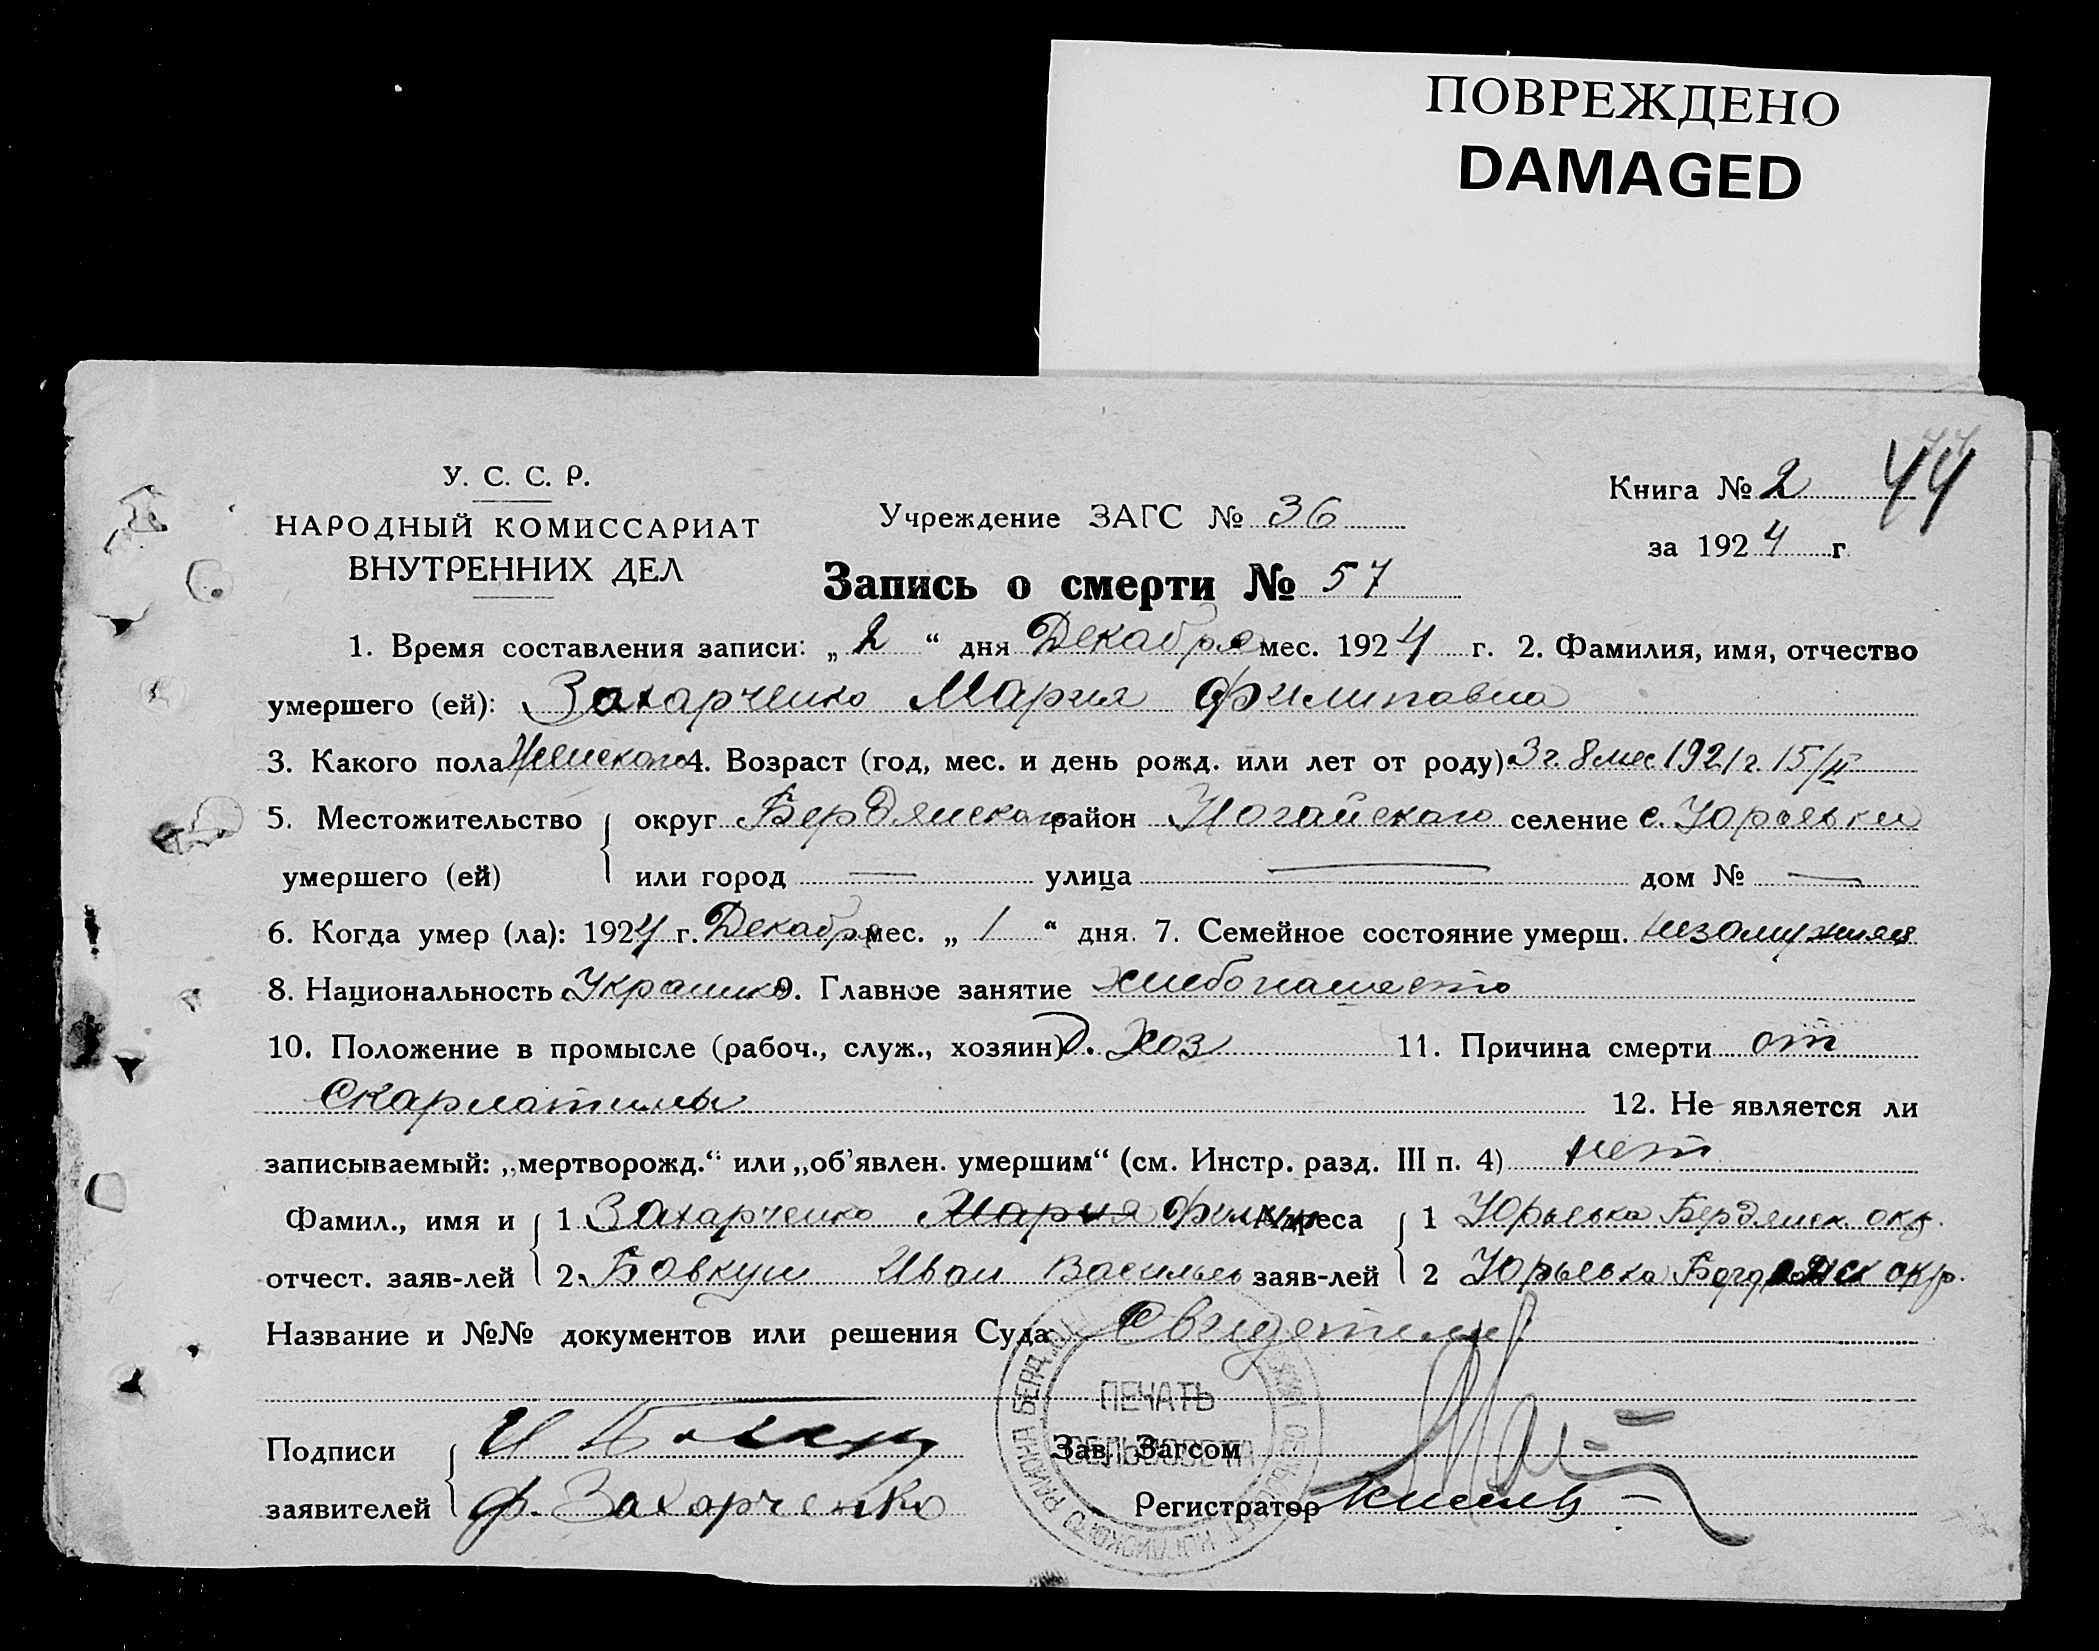 ПОВРЕЖДЕНО
DAMAGED
44
У. С. С. Р.
НАРОДНЫЙ КОМИССАРИАТ
ВНУТРЕННИХ ДЕЛ
Учреждение ЗАГС № 36
Книга № 2
за 1924 г
Запись о смерти № 57
1. Время составления записи: „ 2 “ дня Декабря мес. 1924 г. 2. Фамилия, имя, отчество
умершего (ей): Захарченко Мария Филиповна
3. Какого пола Женского 4. Возраст (год, мес. и день рожд. или лет от роду) 3 г. 8 мес 1921 г. 15/
5. Местожительство округ Бердянского район Ногайского селение с. Юрьевки
умершего (ей) или город — улица — дом № —
6. Когда умер (ла): 1924 г. Декабря мес. „ 1 “ дня. 7. Семейное состояние умерш. незамужняя
8. Национальность Украинка 9. Главное занятие хлебопашество
10. Положение в промысле (рабоч., служ., хозяин) Хоз 11. Причина смерти от
Скарлатины 12. Не является ли
записываемый: „мертворожд.“ или „об’явлен. умершим“ (см. Инстр. разд. III п. 4) нет
Фамил., имя и 1 Захарченко Мария Филип Адреса 1 Юрьевка Бердянск окр.
отчест. заяв-лей 2. Бовкуш Иван Васильев заяв-лей 2 Юрьевка окр.
Название и №№ документов или решения Суда: Свидетели
Подписи И Зав. Загсом
заявителей Ф. Захарченко Регистратор
ПЕЧАТЬ
СЕЛЬСОВЕТА